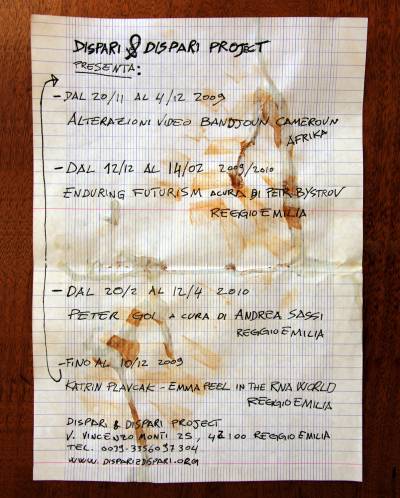 DISPARI & DISPARI PROJECT
PRESENTA:
- DAL 20/11 AL 4/12 2009
ALTERAZIONI VIDEO BANDJOUN CAMEROUN
AFRIKA
- DAL 12/12 AL 14/02 2009/2010
ENDURING FUTURISM A CURA DI PETR BYSTROV
REGGIO EMILIA
- DAL 20/2 AL 12/4 2010
PETER GOI A CURA DI ANDREA SASSI
REGGIO EMILIA
- FINO AL 10/12 2009
KATRIN PLAVCAK - EMMA PEEL IN THE RNA WORLD
REGGIO EMILIA
DISPARI & DISPARI PROJECT
V. VINCENZO MONTI 25, 42100 REGGIO EMILIA
TEL. 0039-3356097304
WWW.DISPARIEDISPARI.ORG